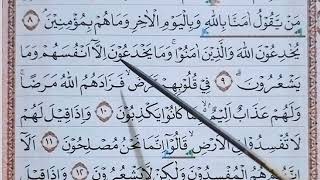 مَنْ يَّقُوْلُ اٰمَنَّا بِاللّٰهِ وَبِالْيَوْمِ الْاٰخِرِ وَمَا هُمْ بِمُؤْمِنِيْنَۘ ۝٨
يُخٰدِعُوْنَ اللّٰهَ وَالَّذِيْنَ اٰمَنُوْا ۚ وَمَا يَخْدَعُوْنَ اِلَّآ اَنْفُسَهُمْ وَمَا
يَشْعُرُوْنَۗ ۝٩ فِيْ قُلُوْبِهِمْ مَّرَضٌۙ فَزَادَهُمُ اللّٰهُ مَرَضًاۚ
وَلَهُمْ عَذَابٌ اَلِيْمٌ ۢ بِمَا كَانُوْا يَكْذِبُوْنَ ۝١٠ وَاِذَا قِيْلَ لَهُمْ
لَا تُفْسِدُوْا فِى الْاَرْضِۙ قَالُوْٓا اِنَّمَا نَحْنُ مُصْلِحُوْنَ ۝١١ اَلَآ
اِنَّهُمْ هُمُ الْمُفْسِدُوْنَ وَلٰكِنْ لَّا يَشْعُرُوْنَ ۝١٢ وَاِذَا قِيْلَ